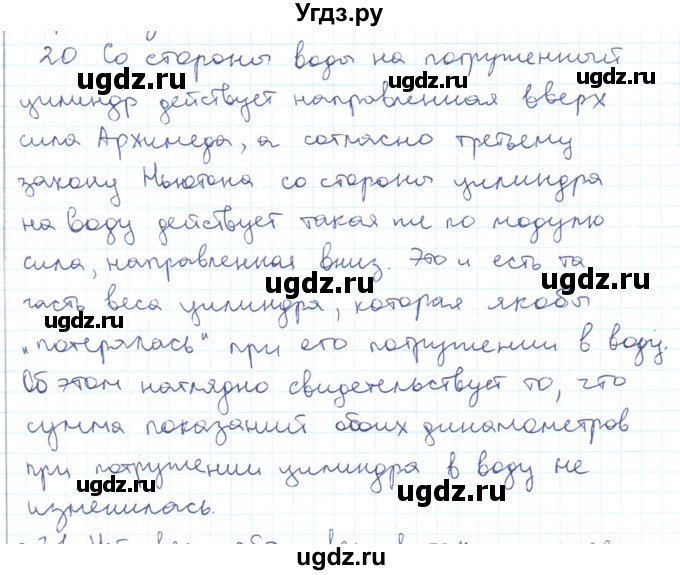 Угдз.ру
20 Со стороны воды на погруженный
цилиндр действует направленная вверх
сила Архимеда, а согласно третьему
закону Ньютона со стороны цилиндра
на воду действует такая же по модулю
сила, направленная вниз. Это и есть та
часть веса цилиндра, которая якобы
„потерялась“ при его погружении в воду.
Об этом наглядно свидетельствует то, что
сумма показаний обоих динамометров
при погружении цилиндра в воду не
изменилась.
ugdz.ru ugdz.ru
ugdz.ru ugdz.ru
ugdz.ru
ugdz.ru
ugdz.ru ugdz.ru
ugdz.ru
ugdz.ru ugdz.ru